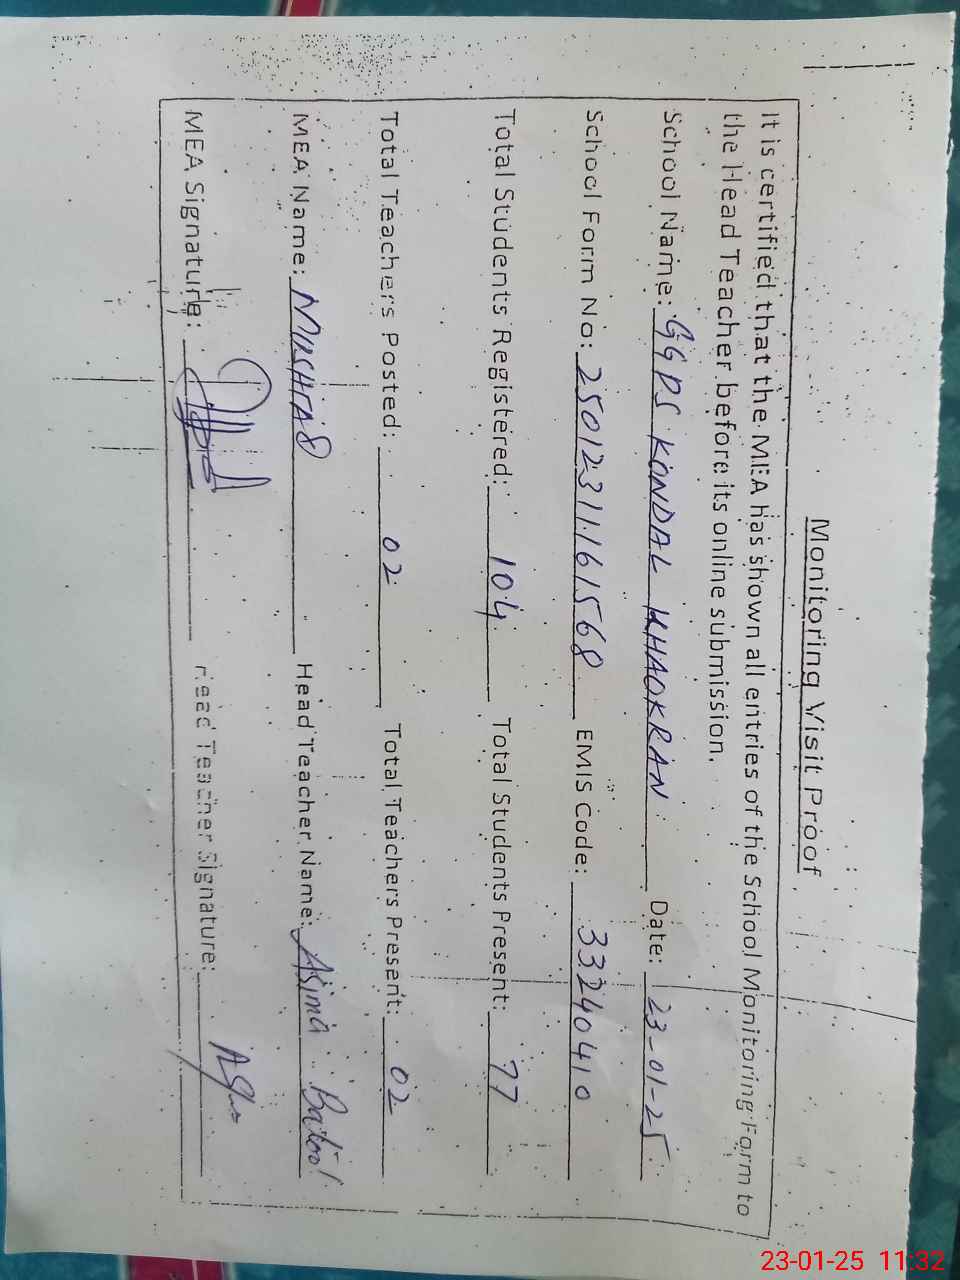 Monitoring Visit Proof
It is certified that the MEA has shown all entries of the School Monitoring Form to
the Head Teacher before its online submission.
School Name: GGPS KONDAL KHAOKRAN Date: 23-01-25
School Form No: 2501231161568 EMIS Code: 33240410
Total Students Registered: 104 Total Students Present: 77
Total Teachers Posted: 02 Total Teachers Present: 02
MEA Name: MUSHTAQ Head Teacher Name: Asima Batool
MEA Signature: Head Teacher Signature:
23-01-25 11:32